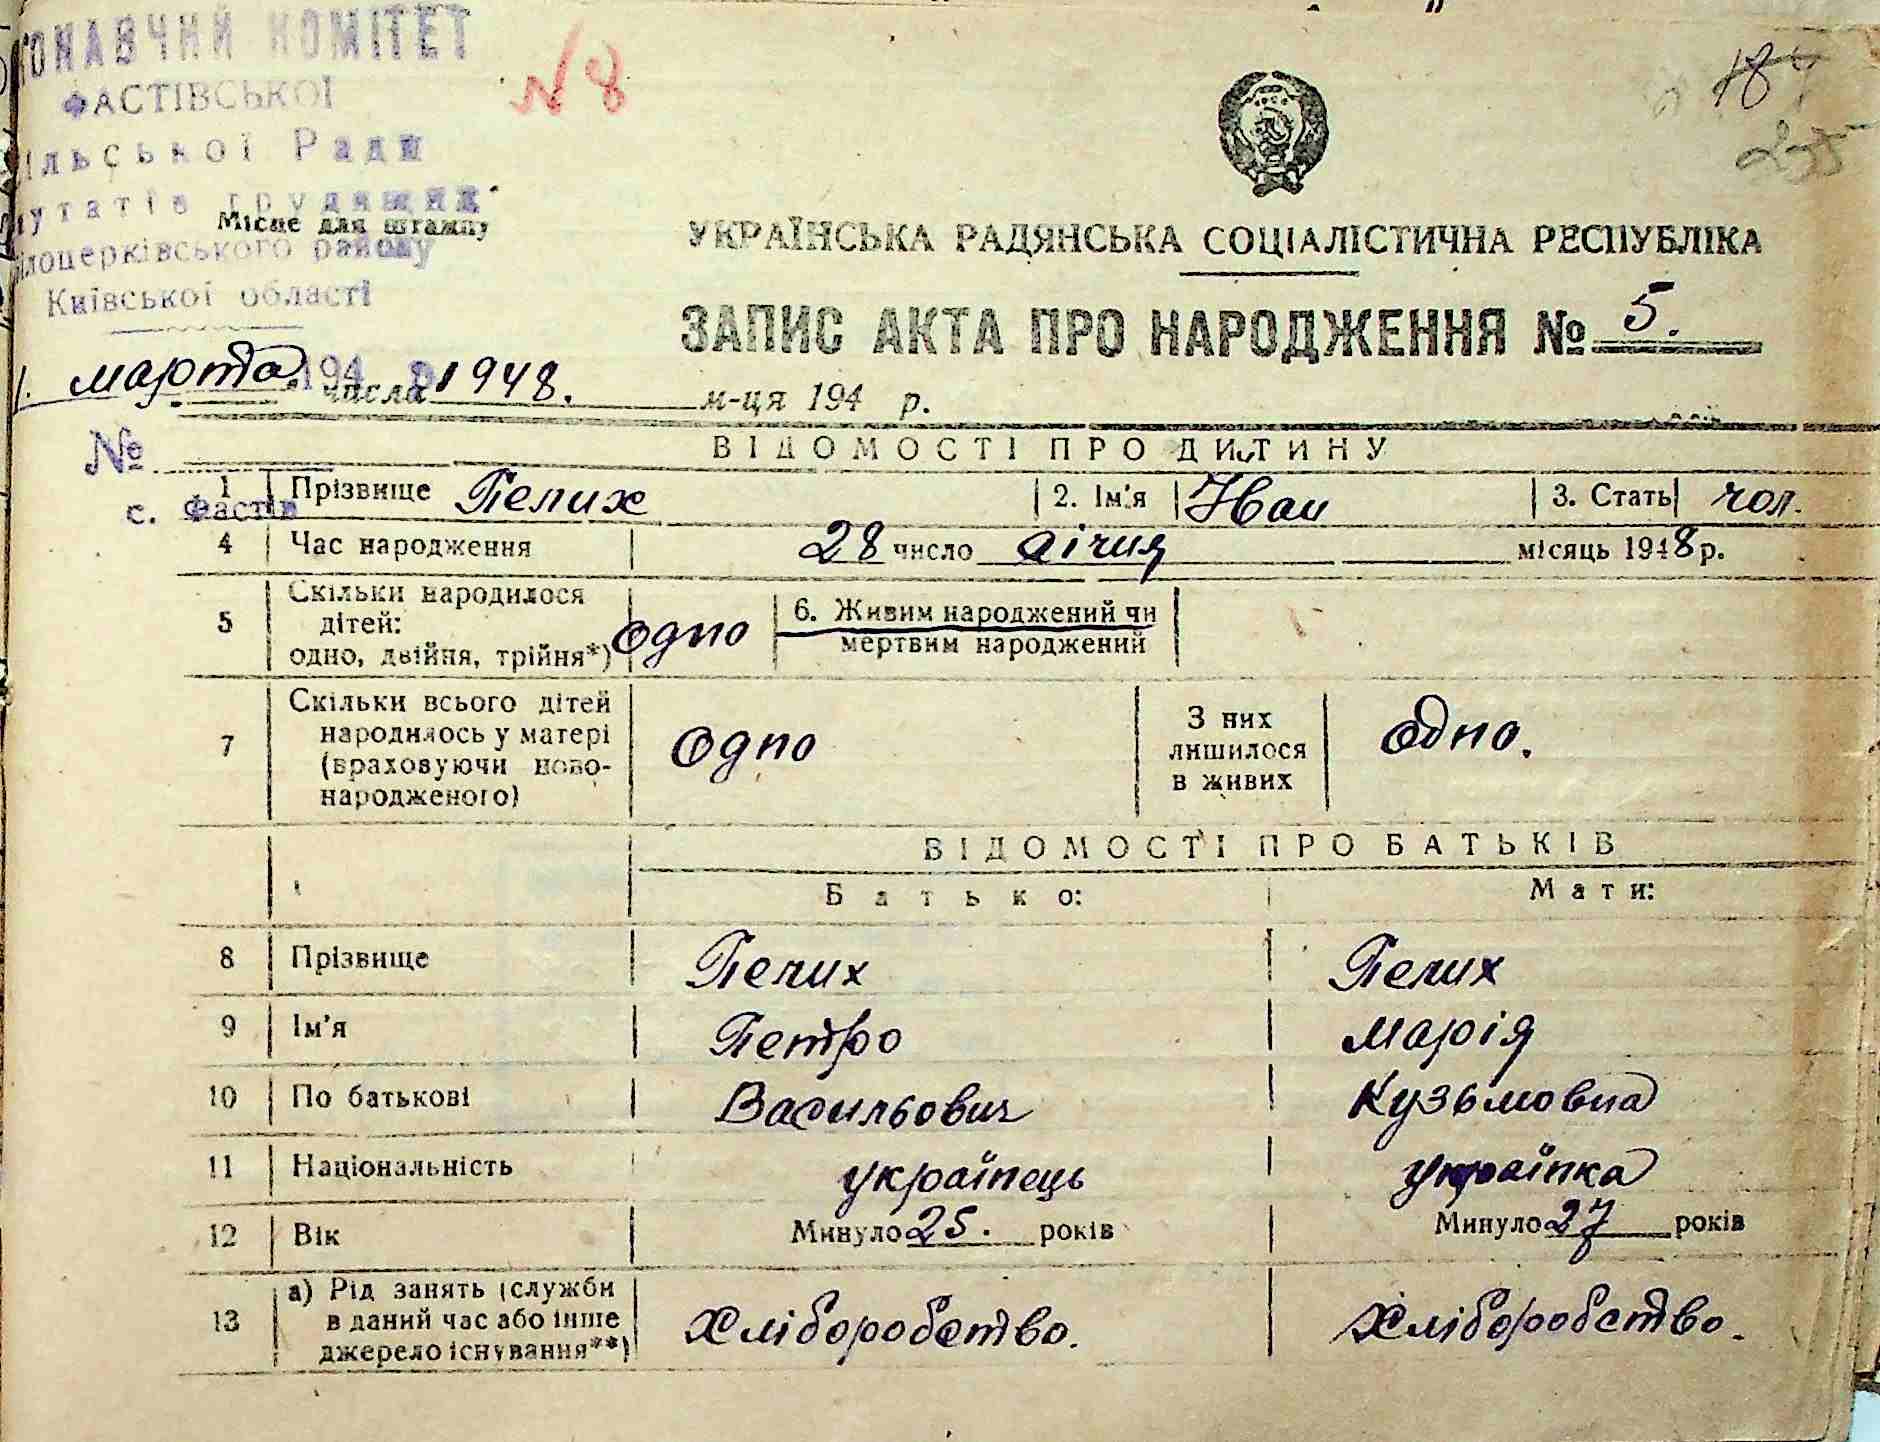 КОНАВЧИЙ КОМІТЕТ
ФАСТІВСЬКОЇ
ільської Ради
путатів трудящих
Місце для штампу
ілоцерківського району
Київської області
№ 8
184
255
УКРАЇНСЬКА РАДЯНСЬКА СОЦІАЛІСТИЧНА РЕСПУБЛІКА
ЗАПИС АКТА ПРО НАРОДЖЕННЯ № 5.
1. марта 194 р. числа 1948. м-ця 194 р.
№
с. Фастів
ВІДОМОСТІ ПРО ДИТИНУ
1 Прізвище Пелих 2. Ім'я Иван 3. Стать чол.
4 Час народження 28 число січня місяць 1948 р.
5 Скільки народилося
дітей:
одно, двійня, трійня*) одно
6. Живим народжений чи
мертвим народжений
7 Скільки всього дітей
народилось у матері
(враховуючи ново-
народженого) одно
З них
лишилося
в живих одно.
ВІДОМОСТІ ПРО БАТЬКІВ
Батько: Мати:
8 Прізвище Пелих Пелих
9 Ім'я Петро Марія
10 По батькові Васильович Кузьмовна
11 Національність українець українка
12 Вік Минуло 25. років Минуло 27 років
13 а) Рід занять (служби
в даний час або інше
джерело існування**) Хліборобство. Хліборобство.